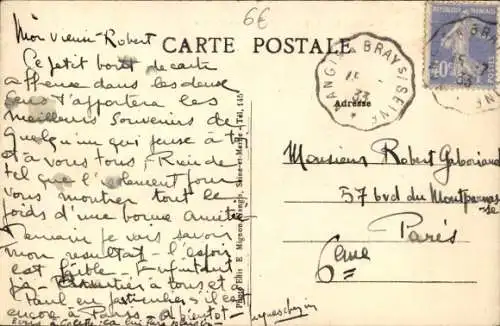 6€
CARTE POSTALE
Mon vieux Robert
Ce petit bout de carte
affreuse dans les deux
sens t'apportera les
meilleurs souvenirs de
quelqu'un qui pense à toi
et à vous tous, Rien de
tel que l'éloignement pour
vous montrer tout le
poids d'une bonne amitié
Demain je vais savoir
mon résultat - l'espoir
est faible -
à tous et à
Paul en particulier s'il est
encore à Paris - à bientôt -
NANGIS A BRAY S/ SEINE
15
33
Adresse
Monsieur Robert Gaboriaud
57 bvd du Montparnasse
Paris
6eme
E Mignon Nangis Seine-et-Marne - Tél. 145